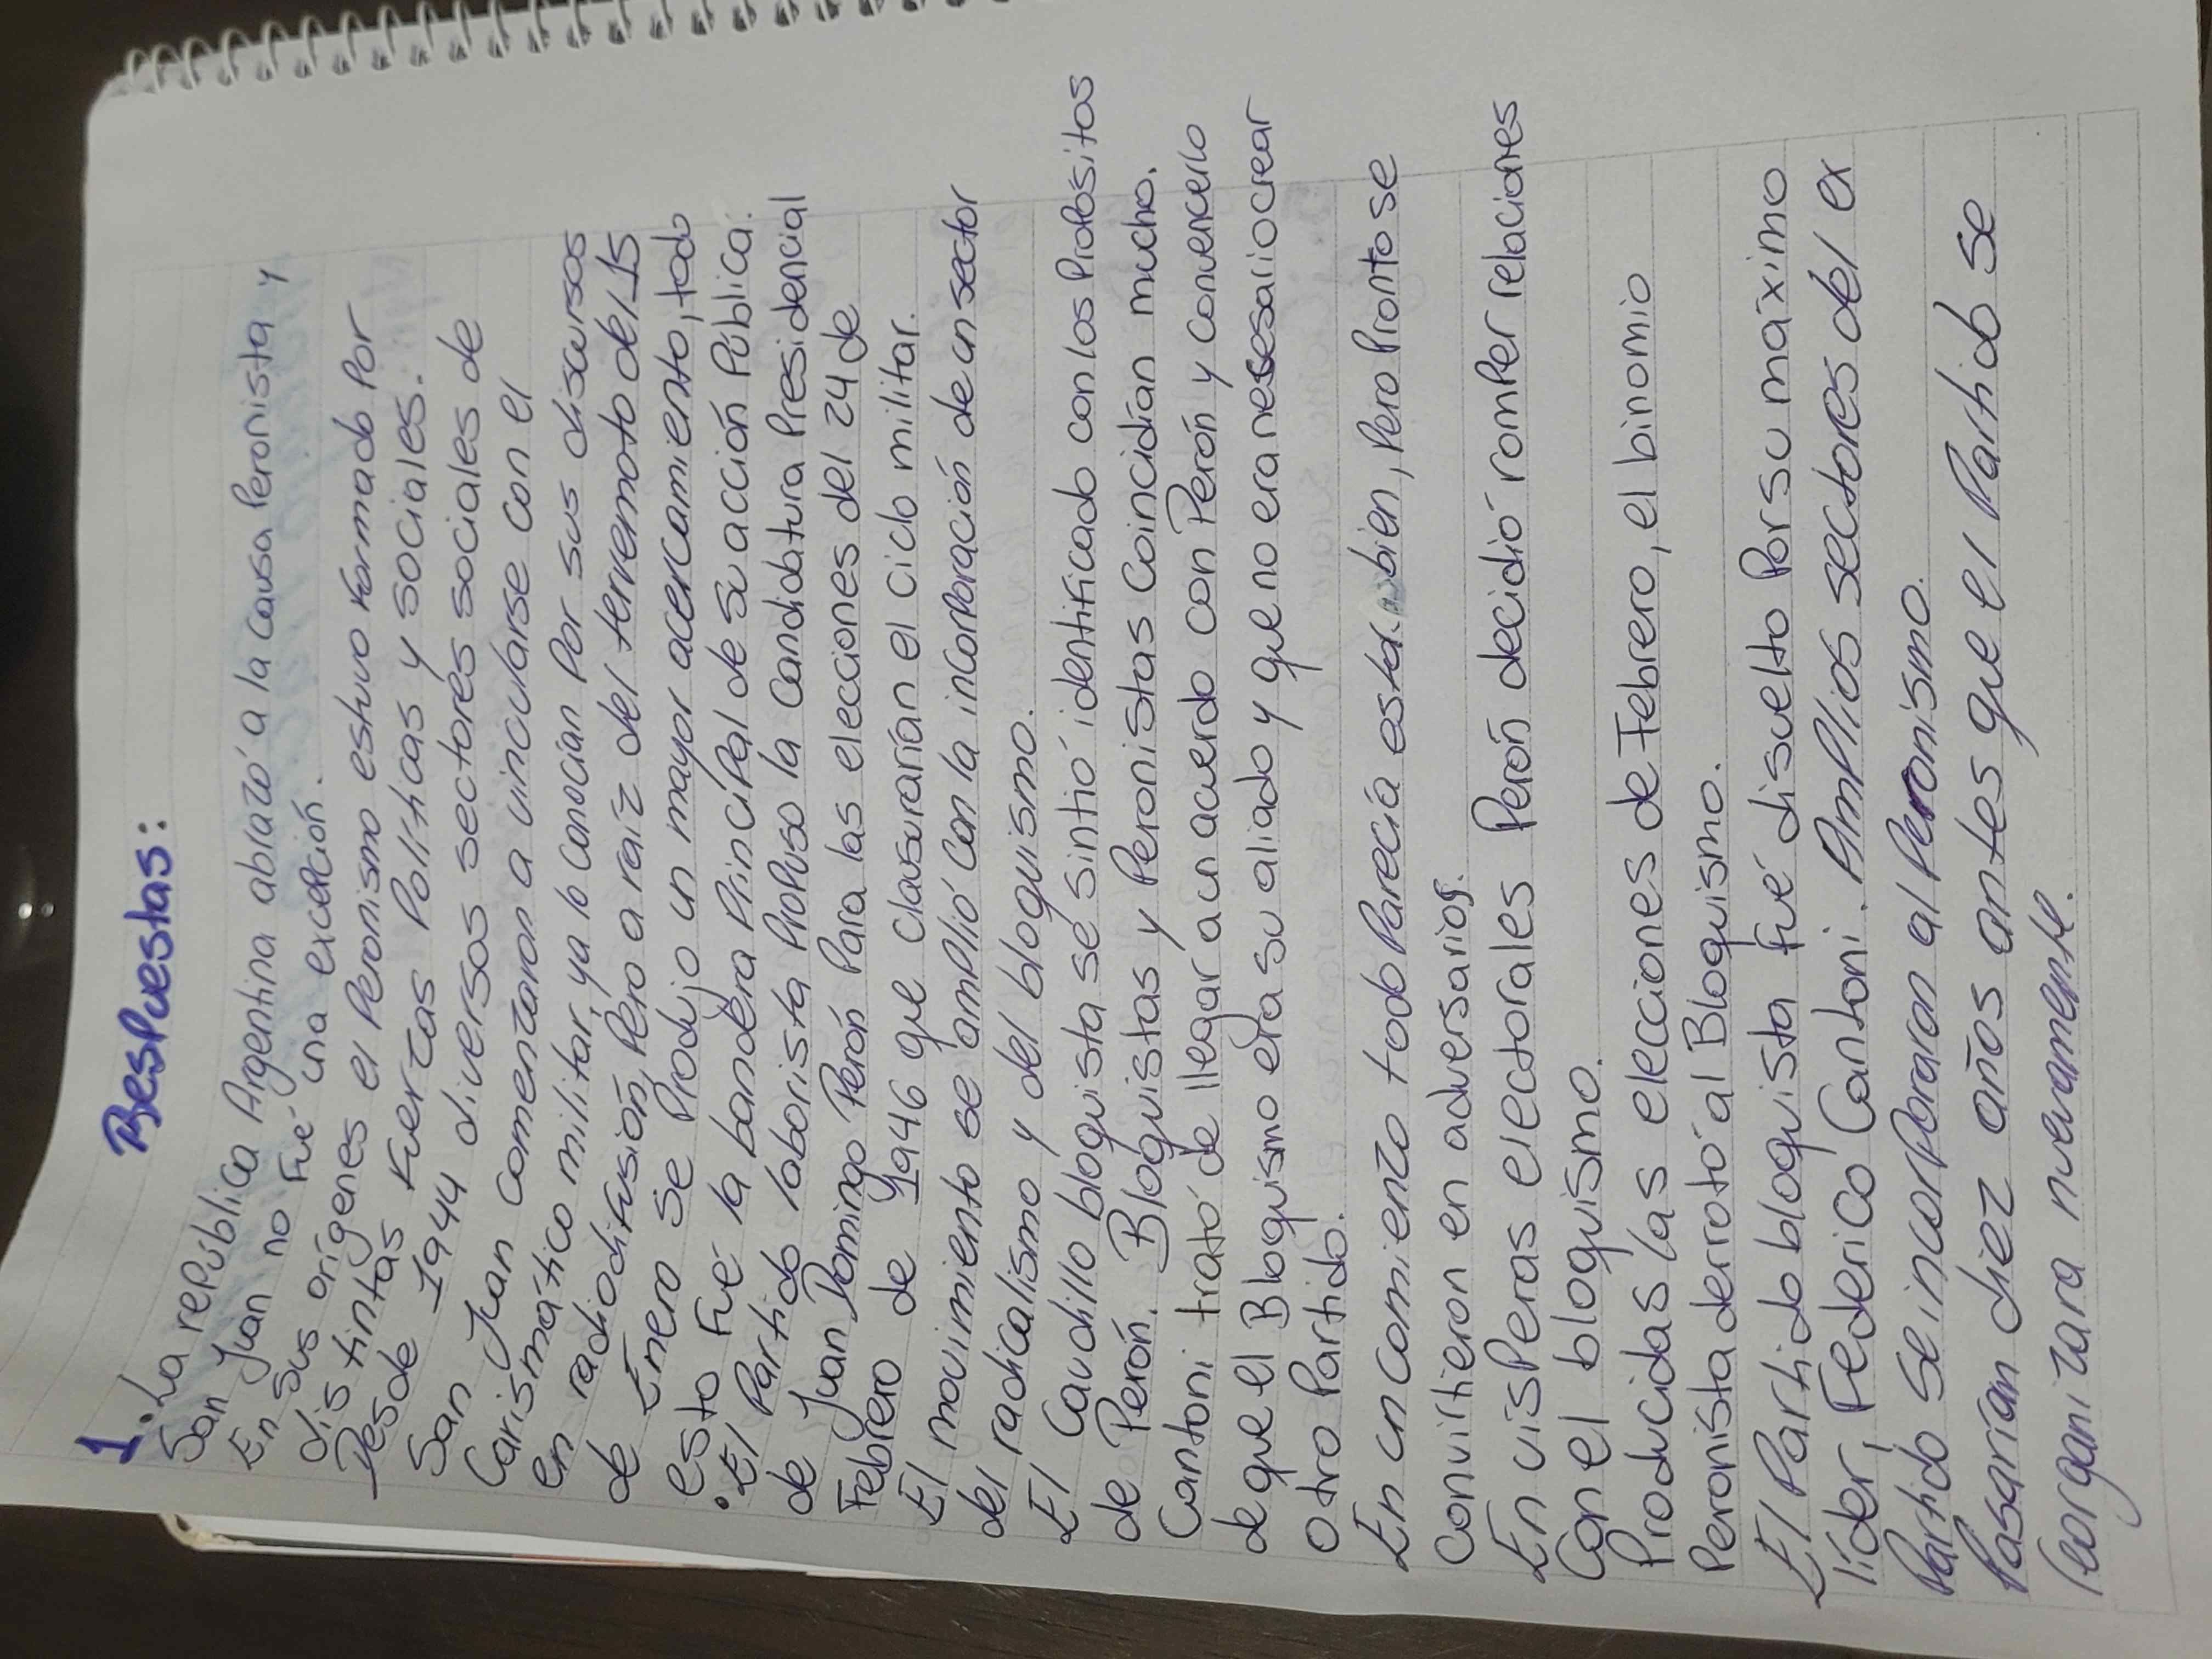 Respuestas:
1. La república Argentina abrazó a la causa Peronista y
San Juan no fué una excepción.
En sus orígenes el Peronismo estuvo formado Por
distintas fuerzas Políticas y sociales.
Desde 1944 diversos sectores sociales de
San Juan comenzaron a vincularse con el
Carismático militar, ya lo conocían Por sus discursos
en radiodifusión, Pero a raíz del terremoto del 15
de Enero se Produjo un mayor acercamiento, todo
esto fué la bandera Principal de su acción Pública.
• El Partido laborista Propuso la candidatura Presidencial
de Juan Domingo Perón Para las elecciones del 24 de
Febrero de 1946 que clausurarían el ciclo militar.
El movimiento se amplió con la incorporación de un sector
del radicalismo y del bloquismo.
El Caudillo bloquista se sintió identificado con los Propósitos
de Perón. Bloquistas y Peronistas Coincidían mucho.
Cantoni trató de llegar a un acuerdo con Perón y convencerlo
de que el Bloquismo era su aliado y que no era necesario crear
otro Partido.
En un comienzo todo Parecía estar bien, Pero Pronto se
convirtieron en adversarios.
En vísPeras electorales Perón decidió romPer relaciones
con el bloquismo.
Producidas las elecciones de Febrero, el binomio
Peronista derrotó al Bloquismo.
El Partido bloquista fué disuelto Por su máximo
líder, Federico Cantoni. AmPlios sectores del ex
Partido se incorPoraran al Peronismo.
Pasarían diez años antes que el Partido se
reorganizara nuevamente.